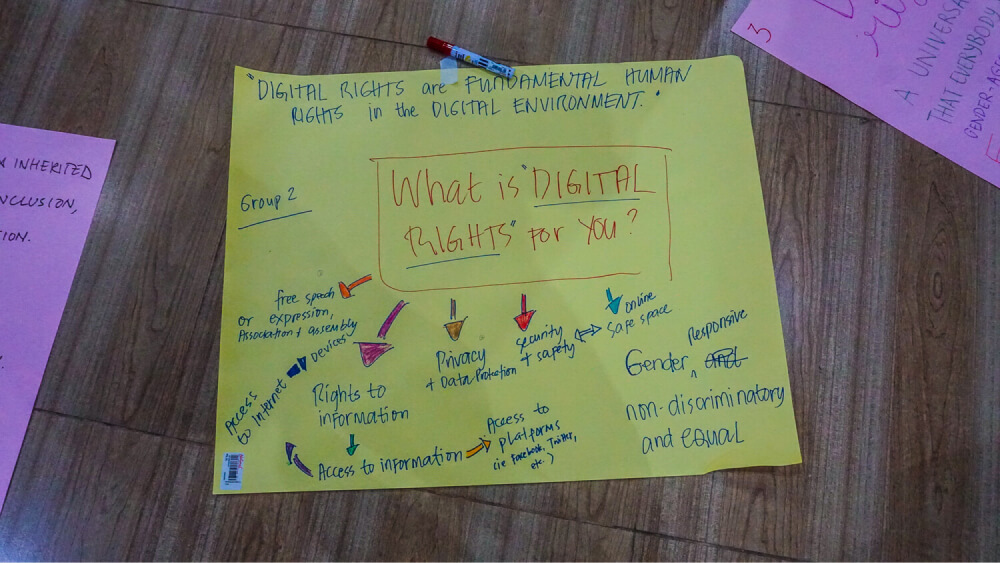 "DIGITAL RIGHTS are FUNDAMENTAL HUMAN
RIGHTS in the DIGITAL ENVIRONMENT."
Group 2
What is "DIGITAL
RIGHTS" FOR YOU?
free speech
or expression,
Association + assembly
Devices
Access
to Internet
Rights to
information
Access to information
Access to
platforms
(ie Facebook, Twitter,
etc.)
Privacy
+ Data Protection
security
+ safety
online
safe space
Responsive
Gender and
non-discriminatory
and equal
INHERITED
INCLUSION,
3
A UNIVERSA
THAT EVERYBODY